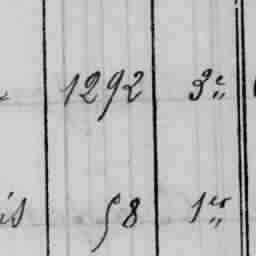 1292 3e
is 58 1er